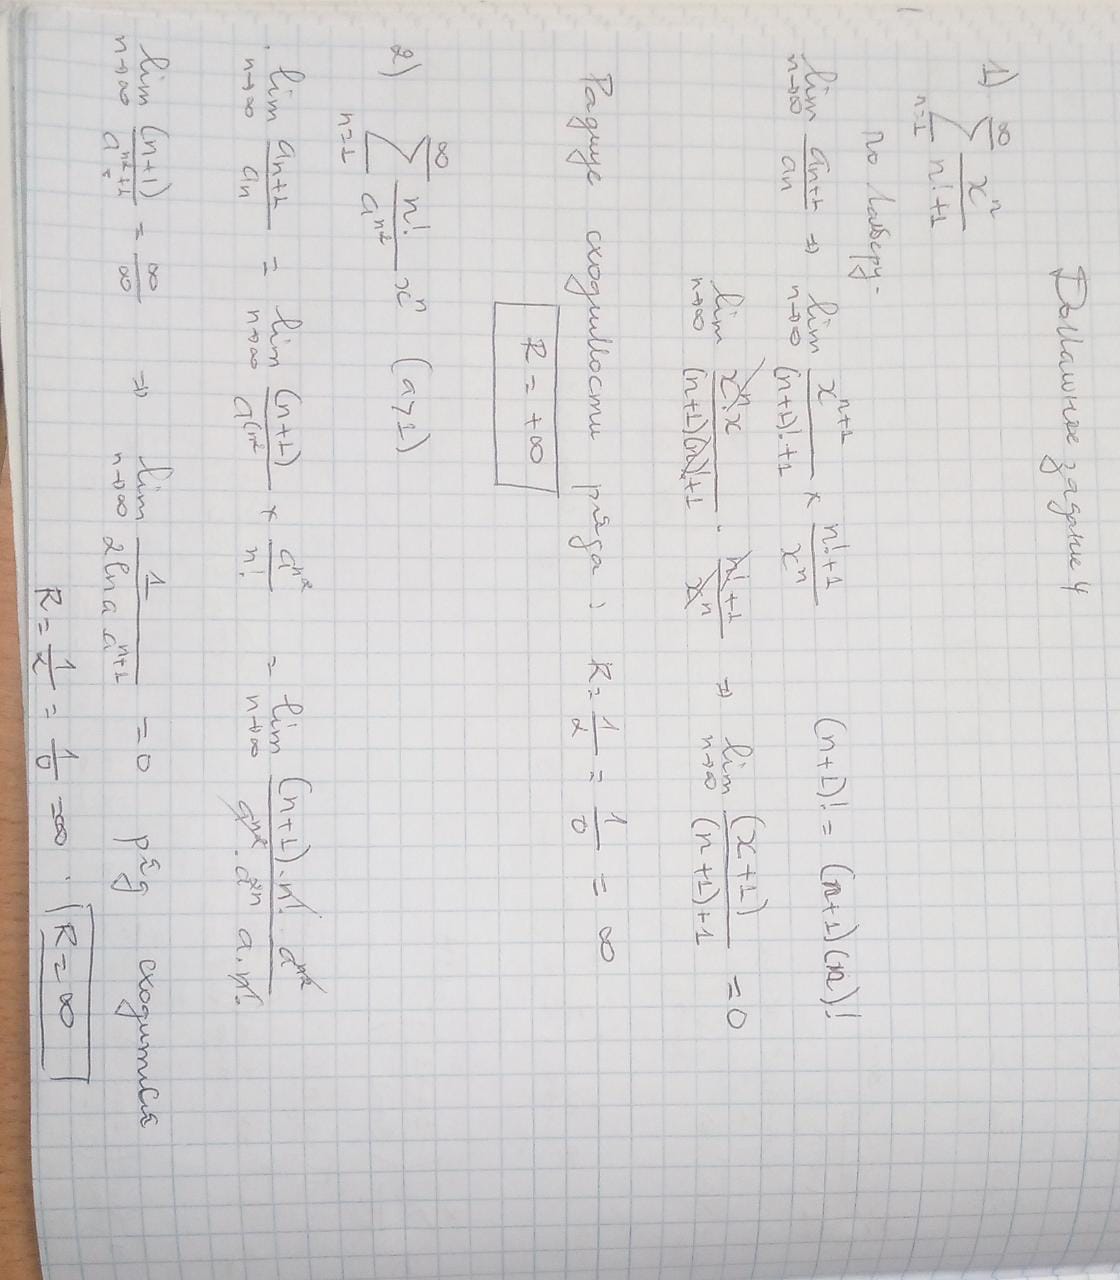 Домашнее задание 4
1) ∑_{n=1}^{∞} x^n / (n!+1)
По
lim_{n→∞} a_{n+1}/a_n ⇒ lim_{n→∞} x^{n+1}/((n+1)!+1) × (n!+1)/x^n (n+1)! = (n+1)(n)!
lim_{n→∞} x^n·x/((n+1)(n)!+1) · (n!+1)/x^n ⇒ lim_{n→∞} (x+1)/((n+1)+1) = 0
Радиус сходимости ряда: R = 1/2 = 1/0 = ∞
R = +∞
2) ∑_{n=1}^{∞} n!/a^{n²} x^n (a>1)
lim_{n→∞} a_{n+1}/a_n = lim_{n→∞} (n+1)/a^{(n²} × a^{n²}/n! = lim_{n→∞} (n+1)·n! a^{n²}/(a^{n²}·a^{2n} a·n!)
lim_{n→∞} (n+1)/a^{n²+1} = ∞/∞ ⇒ lim_{n→∞} 1/(2 ln a a^{n+1}) = 0 ряд сходится
R = 1/2 = 1/0 = ∞. R = ∞